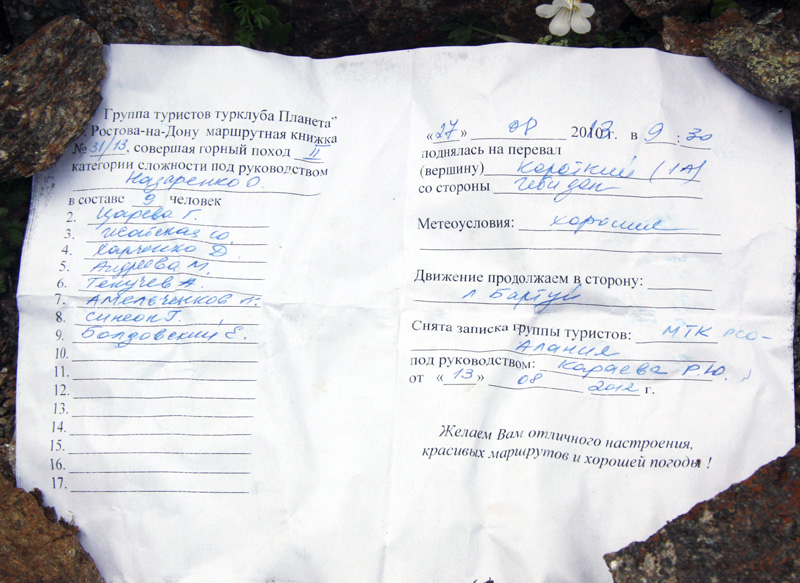 Группа туристов турклуба Планета"
. Ростова-на-Дону маршрутная книжка
№ 31/13, совершая горный поход II
категории сложности под руководством
Назаренко О.
в составе 9 человек
2. Царева Г.
3. Исайская Ю.
4. Харченко Д.
5. Андреева М.
6. Текучев А.
7. Амельченков А.
8. Синеок Г.
9. Болдовский Е.
10.
11.
12.
13.
14.
15.
16.
17.
«27» 08 2013 г. в 9 : 30
поднялась на перевал
(вершину) Короткий (1А)
со стороны
Метеоусловия: хорошие
Движение продолжаем в сторону:
л Бартуй
Снята записка группы туристов: МТК РСО-
Алания
под руководством: Караева Р.Ю.
от «13» 08 2012 г.
Желаем Вам отличного настроения,
красивых маршрутов и хорошей погоды !